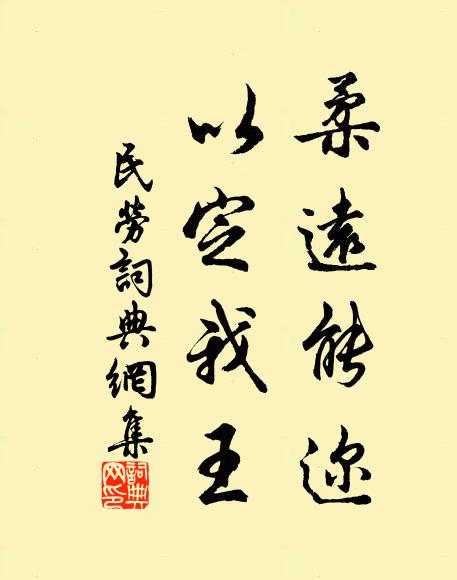 柔遠能迩
以定我王
民勞詞典網集
詞典
网印